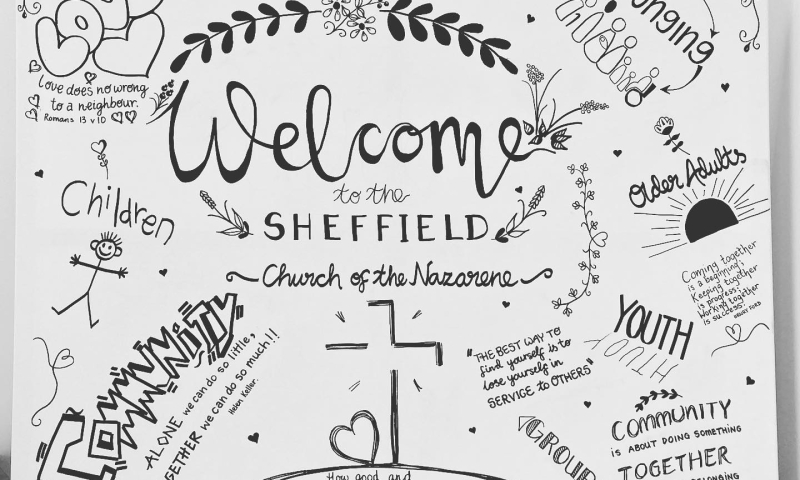 LOVE
Love does no wrong
to a neighbour.
Romans 13 v 10
Welcome
to the
SHEFFIELD
Church of the Nazarene
Children
COMMUNITY
ALONE we can do so little,
TOGETHER we can do so much!!
Helen Keller.
How good and
"THE BEST WAY TO
find yourself is to
lose yourself in
SERVICE to OTHERS"
GROUP
Older Adults
Coming together
is a beginning;
Keeping together
is progress;
Working together
is success.
HENRY FORD
YOUTH
YOUTH
COMMUNITY
IS ABOUT DOING SOMETHING
TOGETHER
BELONGING